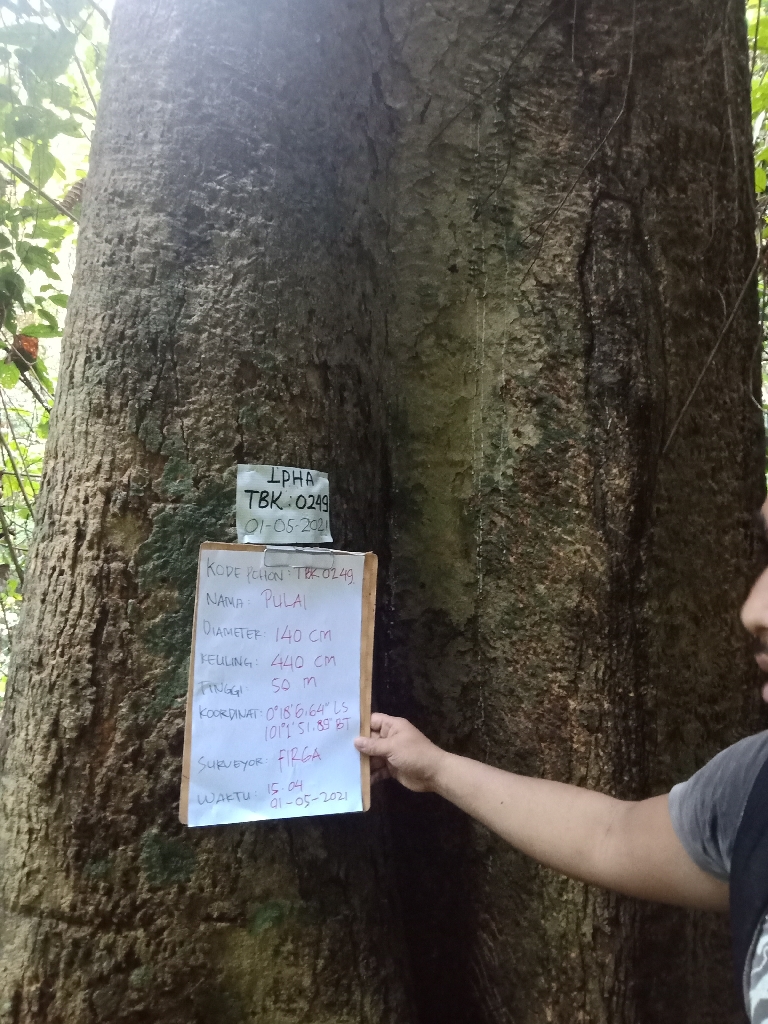 LPHA
TBK : 0249
01-05-2021
KODE POHON : TBK 0249
NAMA : PULAI
DIAMETER : 140 CM
KELILING : 440 CM
TINGGI : 50 M
KOORDINAT : 0°18'6,64" LS
101°1'51,89" BT
SURVEYOR : FIRGA
WAKTU : 15.04
01-05-2021